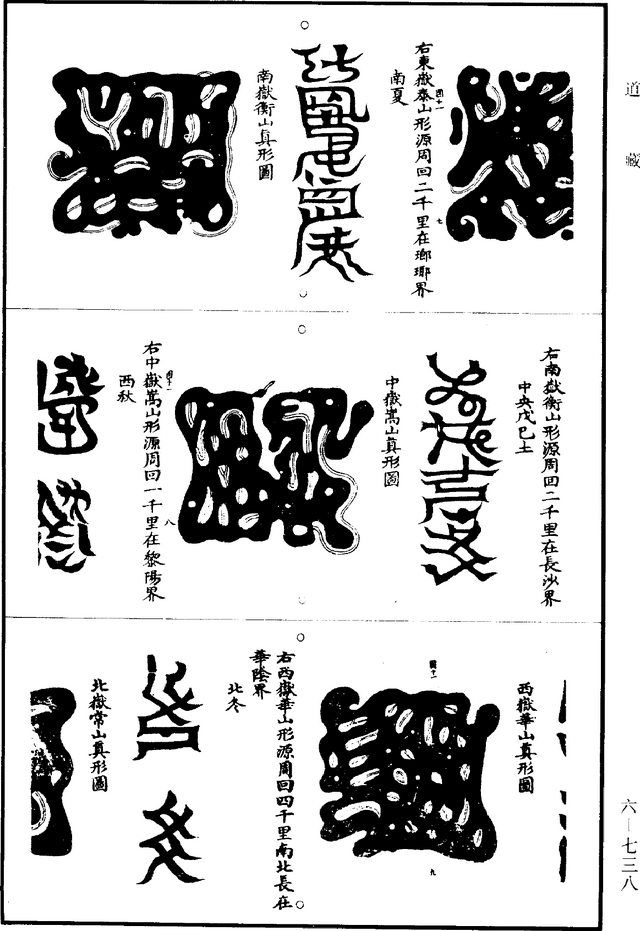 道藏
右東嶽泰山形源周回二千里在瑯瑘界
南夏
七
南嶽衡山真形圖
右南嶽衡山形源周回二千里在長沙界
中央戊己土
中嶽嵩山真形圖
八
右中嶽嵩山形源周回一千里在黎陽界
西秋
西嶽華山真形圖
九
右西嶽華山形源周回四千里南北長在
華陰界
北冬
北嶽常山真形圖
六－七三八